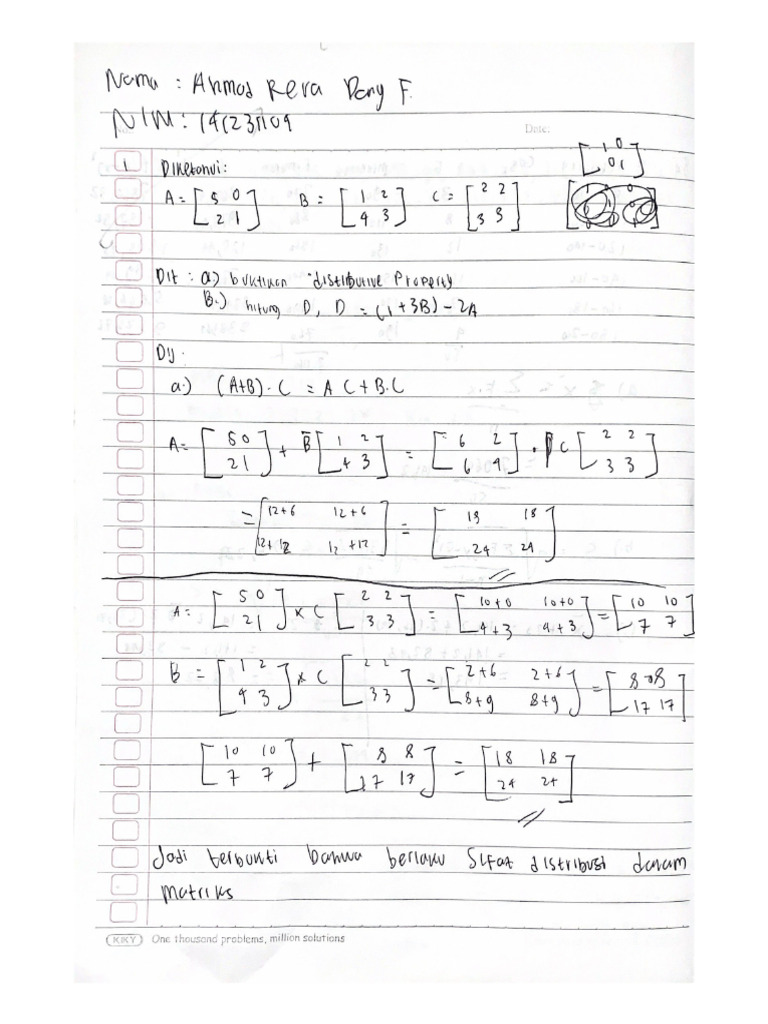 Nama : Ahmad Reva Dany F.
NIM : 1412311109
Date:
[1 0
0 1]
1 Diketahui:
A = [5 0
2 1] B = [1 2
4 3] C = [2 2
3 3]
Dit : a.) buktikan distributive Property
B.) hitung D, D = (1 + 3B) - 2A
Dij :
a.) (A+B) · C = A C + B.C
A = [5 0
2 1] + B [1 2
4 3] = [6 2
6 4] · C [2 2
3 3]
= [12+6 12+6
12+12 12+12] = [18 18
24 24]
A = [5 0
2 1] x C [2 2
3 3] = [10+0 10+0
4+3 4+3] = [10 10
7 7]
B = [1 2
4 3] x C [2 2
3 3] = [2+6 2+6
8+9 8+9] = [8 8
17 17]
[10 10
7 7] + [8 8
17 17] = [18 18
24 24]
Jadi terbukti bahwa berlaku Sifat distribusi dalam
matriks
KKY One thousand problems, million solutions